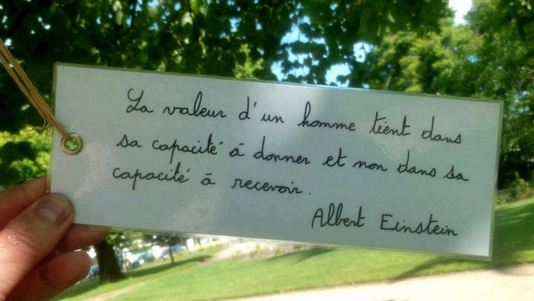 La valeur d'un homme tient dans
sa capacité à donner et non dans sa
capacité à recevoir.
Albert Einstein